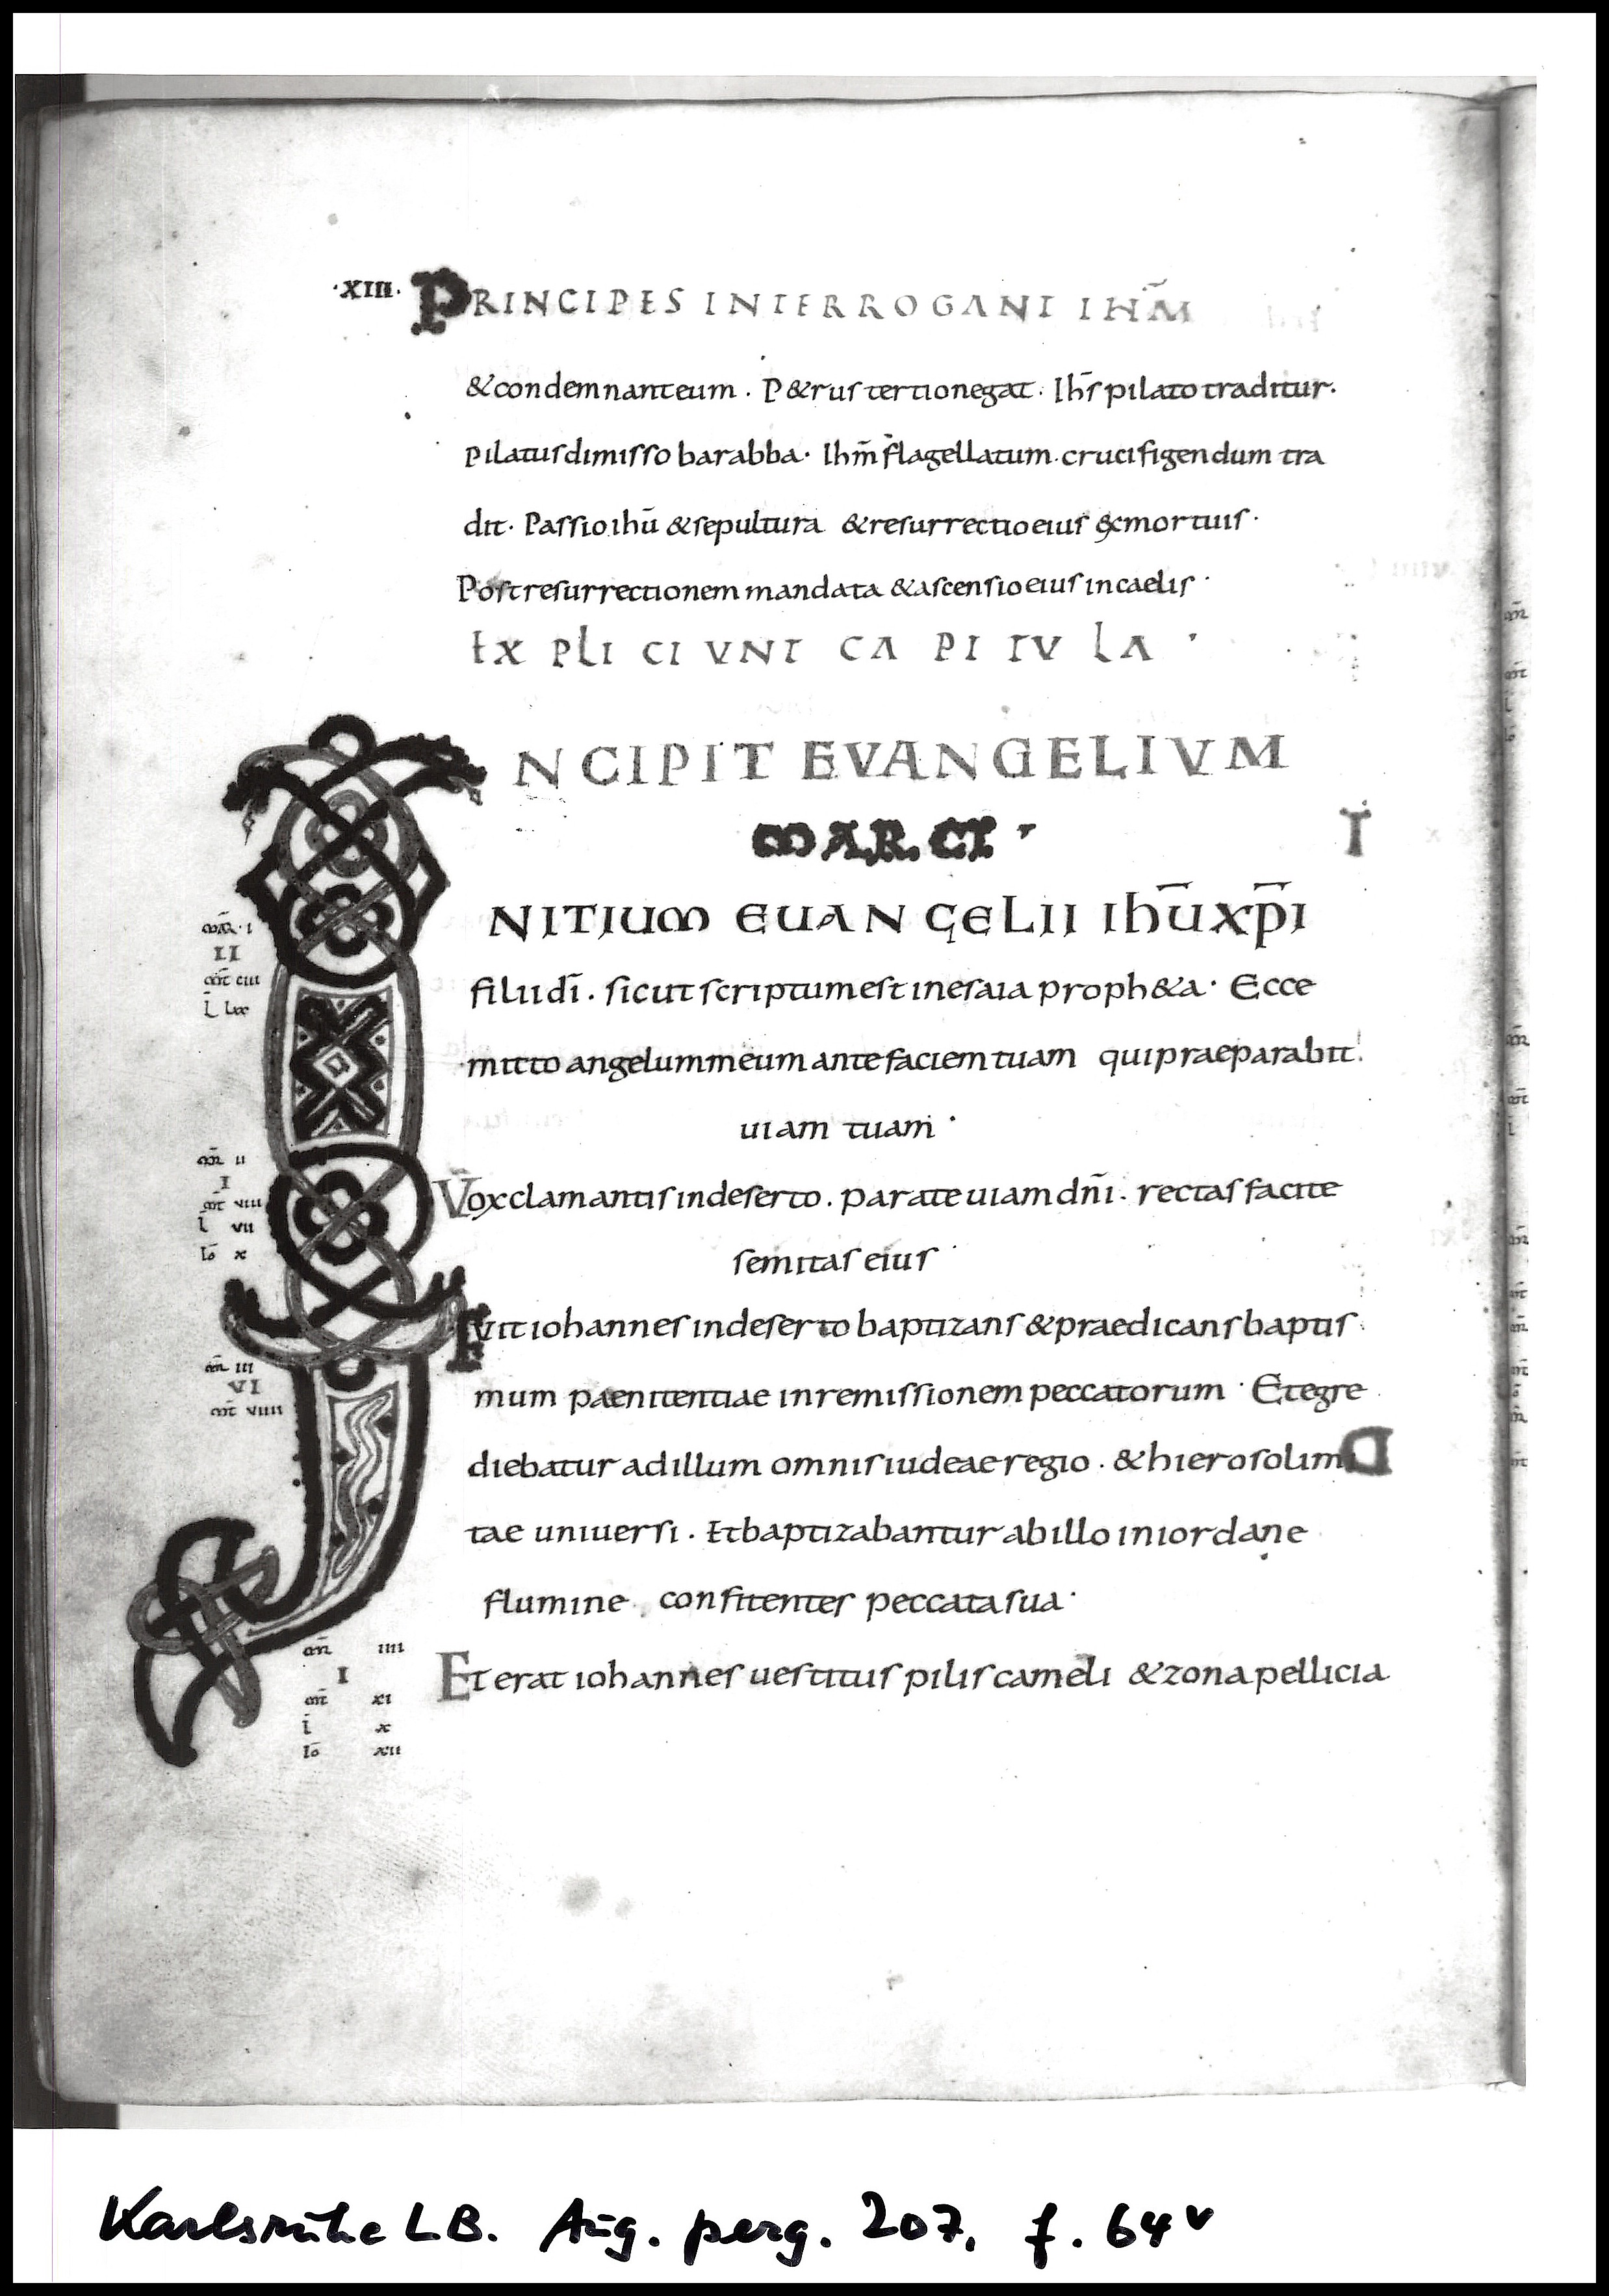 ·XIII· PRINCIPES INTERROGANT IHM̄
& condemnant eum · P&rus tertio negat · Ihs̄ pilato traditur ·
pilatus dimisso barabba · Ihm̄ flagellatum · crucifigendum tra
dit · Passio ihū & sepultura & resurrectio eius ex mortuis ·
Post resurrectionem mandata & ascensio eius in caelis ·
EXPLICIUNT CAPITULA ·
INCIPIT EVANGELIVM
MARCI ·
NITIUM EUANGELII IhŪ XP̄I
filii dī · sicut scriptum est in esaia proph&a · Ecce
mitto angelum meum ante faciem tuam qui praeparabit
uiam tuam ·
mar̄ · I
II
mt̄ ciii
l lxx
Vox clamantis in deserto · parate uiam dn̄i · rectas facite
semitas eius ·
mr̄ II
I
mt̄ VIII
l̄ VII
Iō X
Fuit iohannes in deserto baptizans & praedicans baptis
mum paenitentiae in remissionem peccatorum · Et egre
diebatur ad illum omnis iudeae regio · & hierosolimi
tae uniuersi · Et baptizabantur ab illo in iordane
flumine confitentes peccata sua ·
mr̄ III
VI
mt̄ VIIII
Et erat iohannes uestitus pilis cameli & zona pellicia
mr̄ IIII
I
mt̄ XI
l̄ X
Iō XII
Karlsruhe LB. Aug. perg. 207, f. 64v